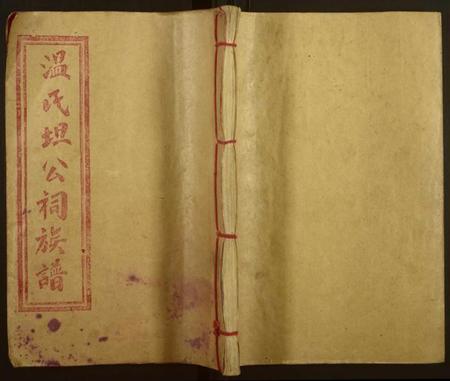 温氏坦公祠族譜